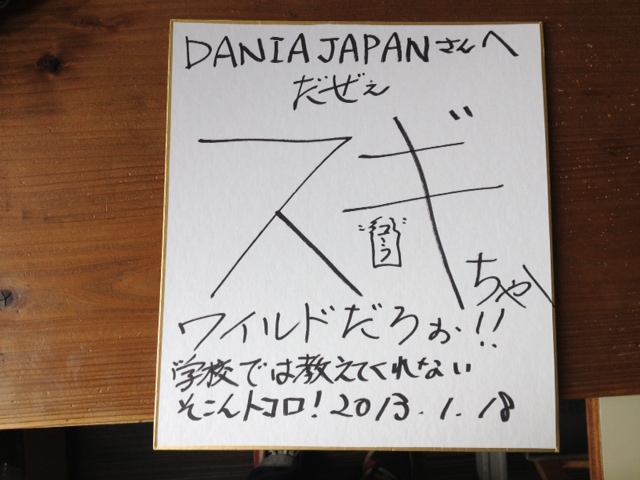 DANIA JAPANさんへ
だぜぇ
スギちゃん
コーラ
ワイルドだろぉ!!
学校では教えてくれない
そこんトコロ! 2013.1.18